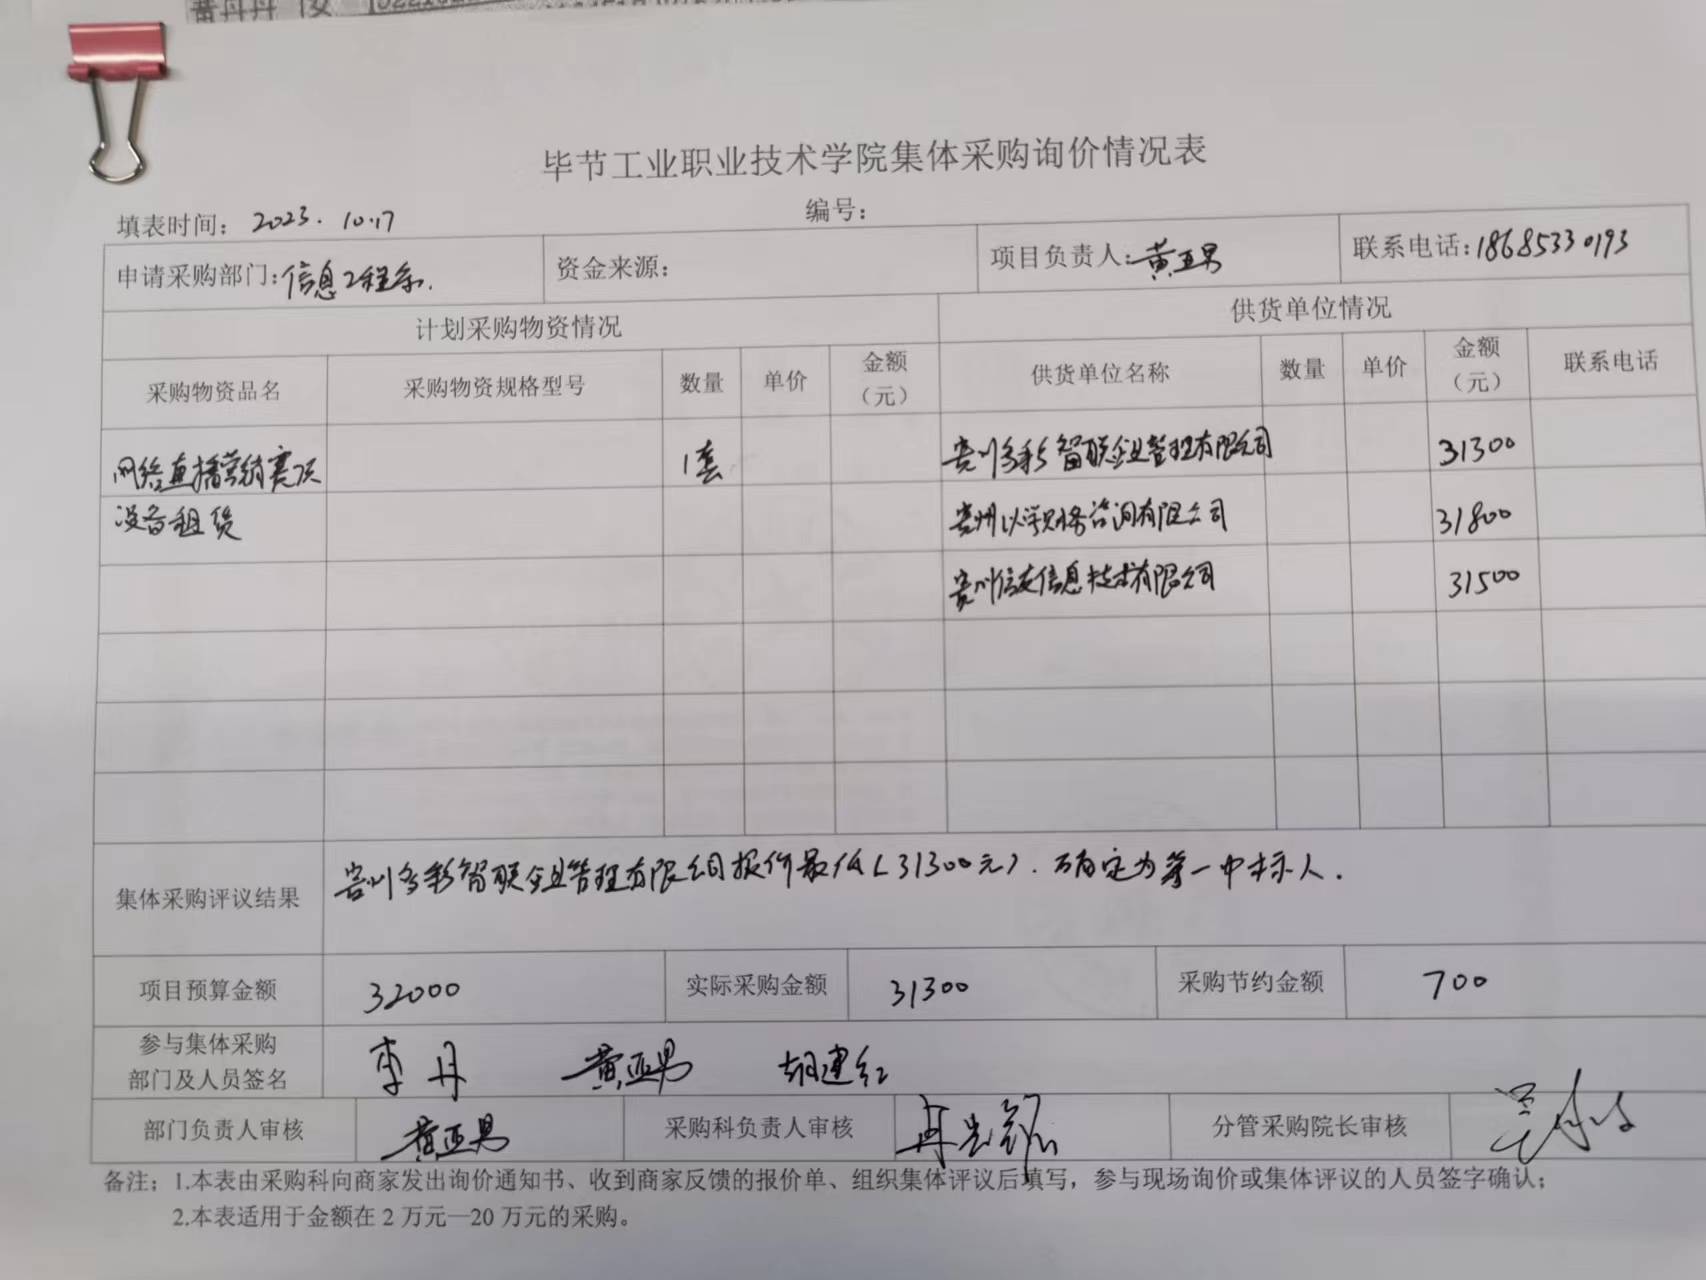 黄丹丹 女
毕节工业职业技术学院集体采购询价情况表
填表时间: 2023.10.17 编号:
申请采购部门:信息工程系. 资金来源: 项目负责人:黄亚男 联系电话:18685330193
计划采购物资情况 供货单位情况
采购物资品名 采购物资规格型号 数量 单价 金额(元) 供货单位名称 数量 单价 金额(元) 联系电话
网络直播营销赛项 1套 贵州多彩智联企业管理有限公司 31300
设备租赁 贵州以学财务咨询有限公司 31800
贵州信友信息技术有限公司 31500
集体采购评议结果 贵州多彩智联企业管理有限公司报价最低(31300元).确定为第一中标人.
项目预算金额 32000 实际采购金额 31300 采购节约金额 700
参与集体采购
部门及人员签名 李丹 黄亚男 胡建红
部门负责人审核 黄亚男 采购科负责人审核 分管采购院长审核
备注:1.本表由采购科向商家发出询价通知书、收到商家反馈的报价单、组织集体评议后填写,参与现场询价或集体评议的人员签字确认;
2.本表适用于金额在2万元—20万元的采购。